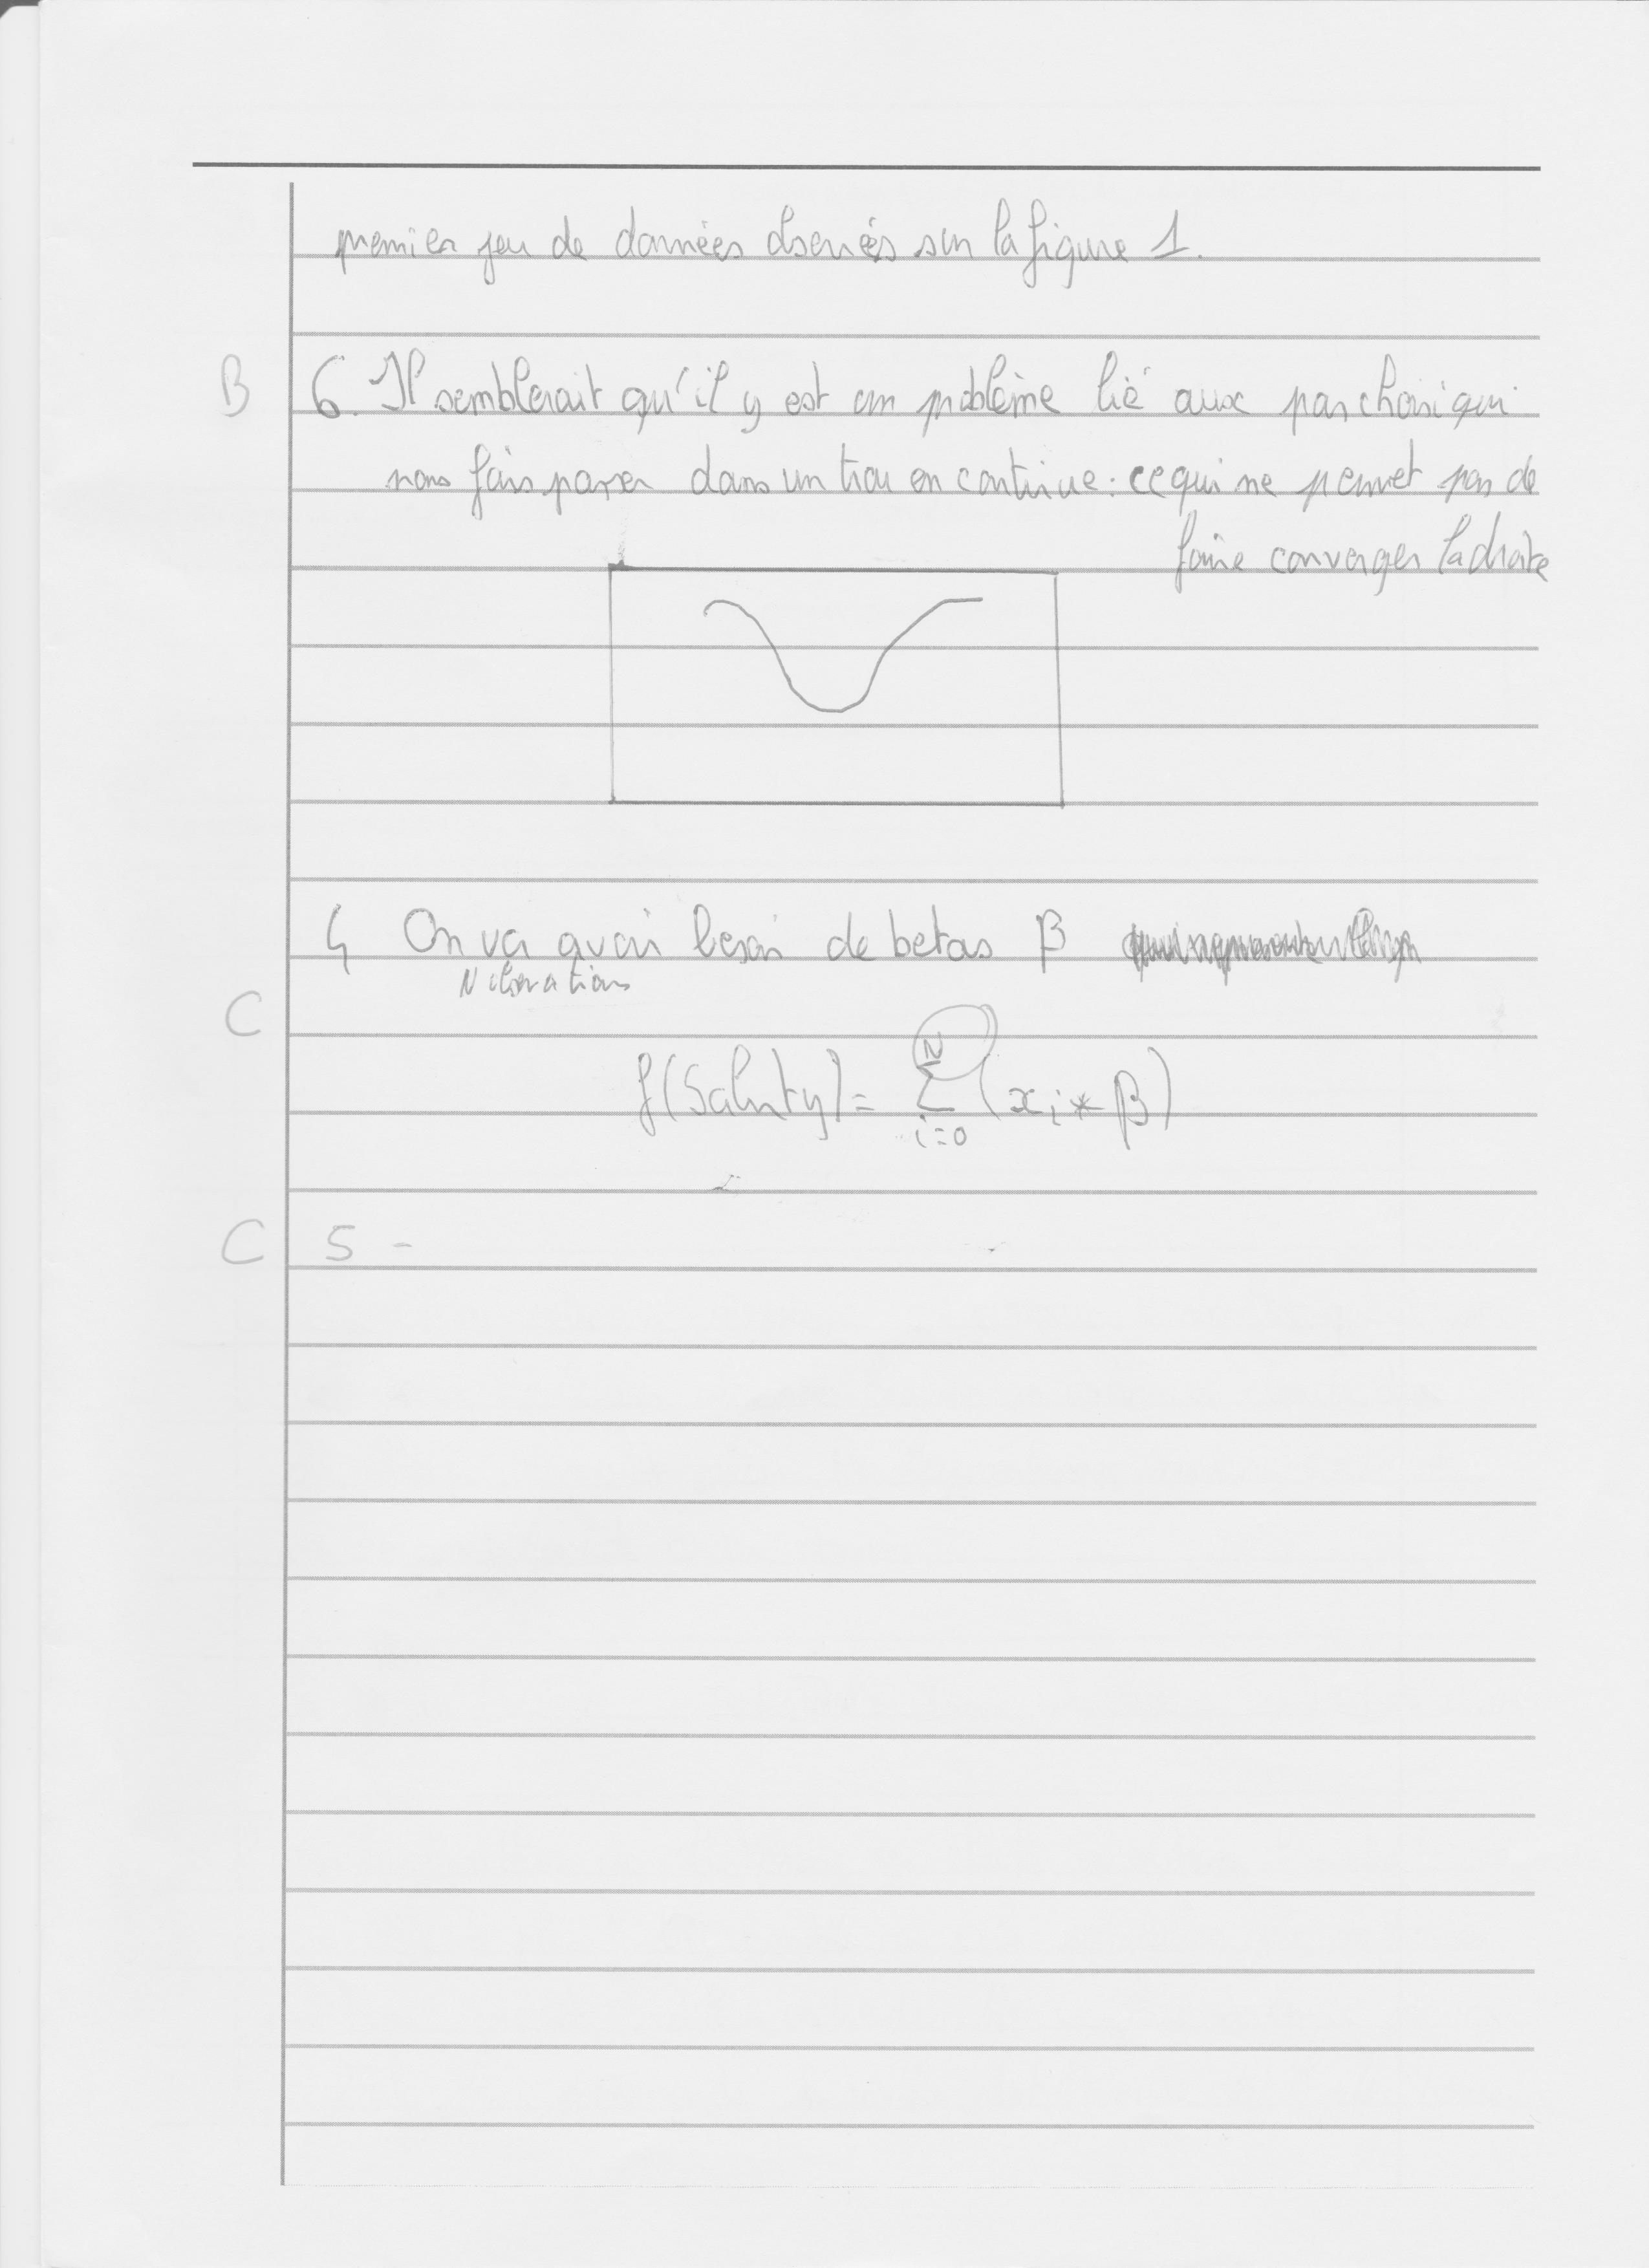 premier jeu de données observés sur la figure 1.
B 6. Il semblerait qu'il y est un problème lié aux pas choisi qui
nous fais passer dans un trou en continue : ce qui ne permet pas de
faire converger la droite
4 On va avoir besoin de betas β
N itérations
C
f(Salnty) = Σ N i=0 (xi * β)
C 5 -